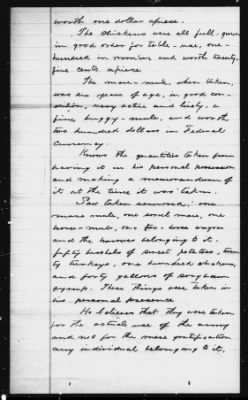 worth one dollar apiece.
The chickens were all full-grown
in good order for table-use, one-
hundred in number and worth twenty
five cents apiece
The mare-mule, when taken,
was six years of age, in good con-
dition, very active and lively, a
fine, buggy-mule, and worth
two hundred dollars in Federal
Currency.
Knows the quantities taken from
having it in his personal possession
and making a memorandum of
it at the time it was taken.
Saw taken : one
mare mule, one sorrel mare, one
horse-mule, one two-horse wagon
and the harness belonging to it,
fifty bushels of sweet potatoes, twen
ty turkeys, one hundred chickens,
and forty gallons of sorghum
syrup. These things were taken in
his personal presence
He believes that they were taken
for the actual use of the army
and not for the mere gratification
any individual belonging to it.